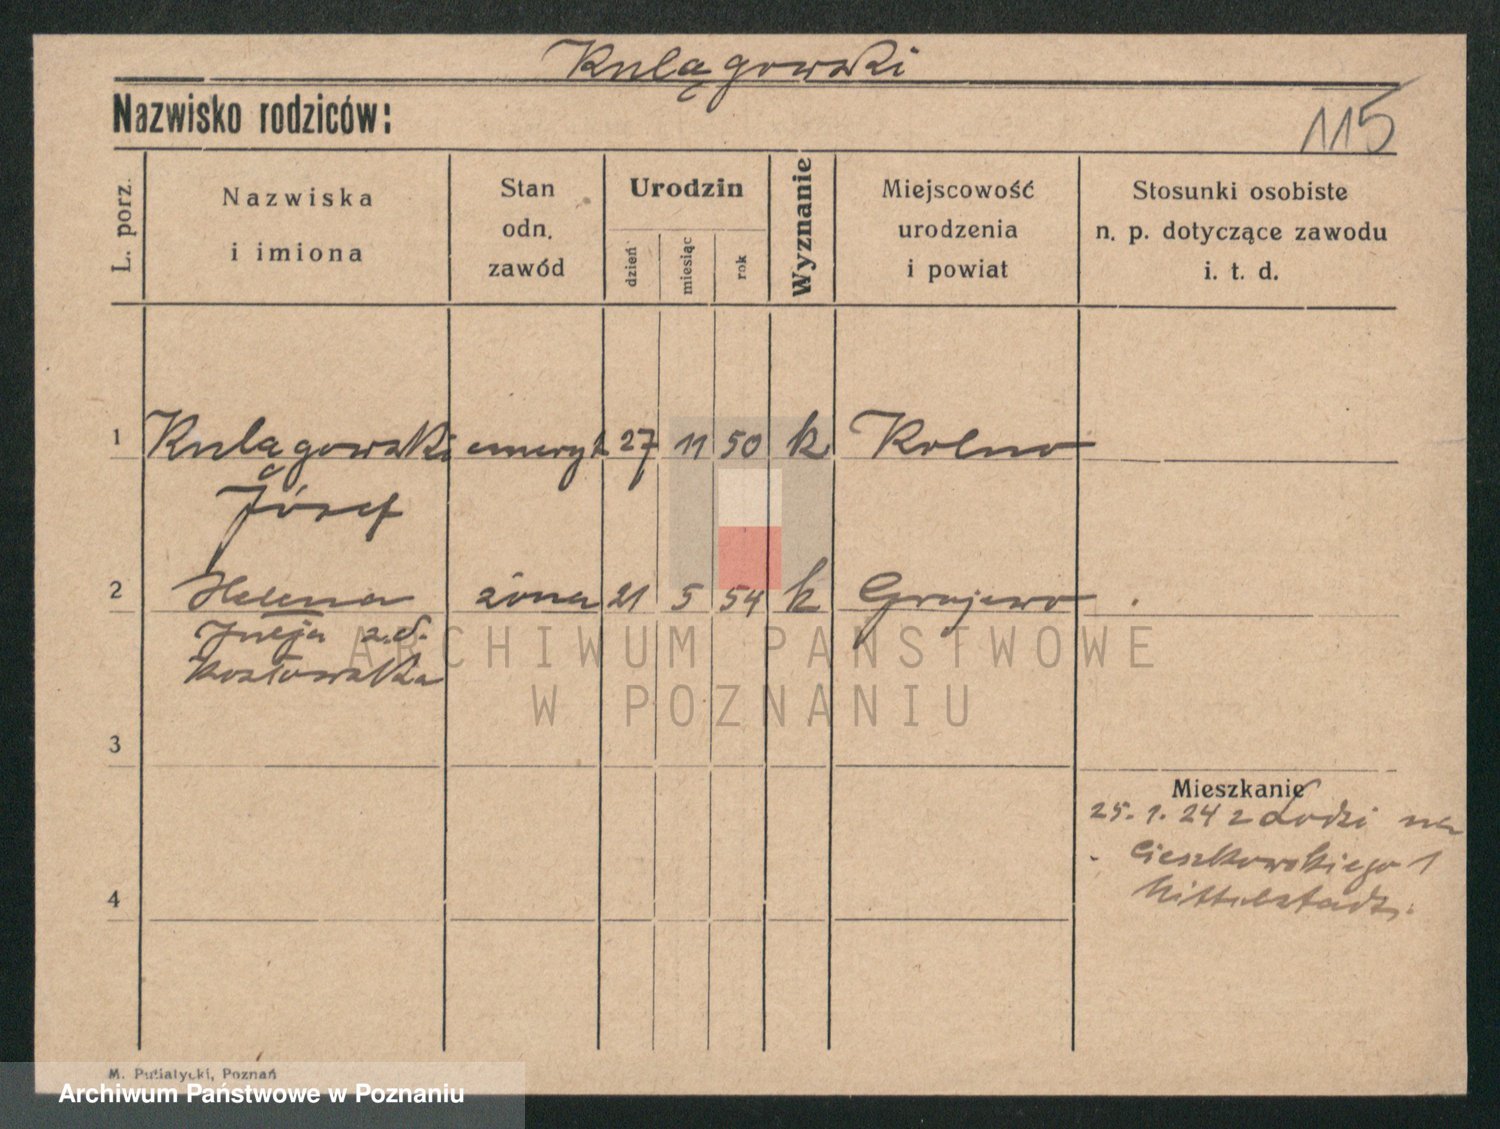 Kulągowski
Nazwisko rodziców:
115
L. porz.
Nazwiska
i imiona
Stan
odn.
zawód
Urodzin
dzień
miesiąc
rok
Wyznanie
Miejscowość
urodzenia
i powiat
Stosunki osobiste
n. p. dotyczące zawodu
i. t. d.
1 Kulągowski emeryt 27 11 50 k Kolno
Józef
2 Helena żona 21 5 54 k Grajewo
z.d.
Kozłowska
ARCHIWUM PAŃSTWOWE
W POZNANIU
3
Mieszkanie
25. 1. 24 z Łodzi na
Cieszkowskiego 1
Mittelstädt.
4
M. Putiatycki, Poznań
Archiwum Państwowe w Poznaniu